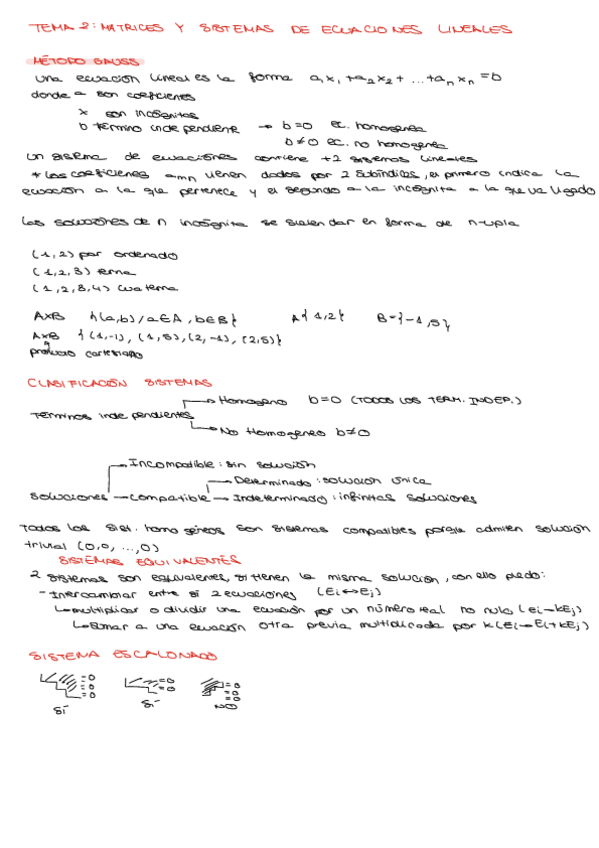 TEMA 2: MATRICES Y SISTEMAS DE ECUACIONES LINEALES
MÉTODO GAUSS
una ecuación lineal es la forma a₁x₁ + a₂x₂ + ... + aₙxₙ = b
donde a son coeficientes
x son incógnitas
b término independiente → b=0 ec. homogenea
b≠0 ec. no homogenea
un sistema de ecuaciones contiene +2 sistemas lineales
* los coeficientes amn vienen dados por 2 subíndices, el primero indica la
ecuación a la que pertenece y el segundo a la incógnita a la que va ligado
Las soluciones de n incógnita se suelen dar en forma de n-upla
(1,2) par ordenado
(1,2,3) terna
(1,2,3,4) cuaterna
AxB {(a,b)/a∈A, b∈B} A{1,2} B={-1,5}
AxB {(1,-1), (1,5), (2,-1), (2,5)}
producto cartesiano
CLASIFICACIÓN SISTEMAS
Homogeno b=0 (TODOS LOS TERM. INDEP.)
Terminos independientes
No Homogeneo b≠0
Incompatible: sin solución
Determinado: solución única
soluciones — compatible → Indeterminado: infinitas soluciones
Todos los sist. homogéneos son sistemas compatibles porque admiten solución
trivial (0,0, ...,0)
SISTEMAS EQUIVALENTES
2 sistemas son equivalentes, si tienen la misma solución, con ello puedo:
- Intercambiar entre sí 2 ecuaciones (Ei↔Ej)
multiplicar o dividir una ecuación por un número real no nulo (Ei→kEj)
sumar a una ecuación otra previa multiplicada por k (Ei→Ei+kEj)
SISTEMA ESCALONADO
=0 =0 =0
=0 =0 =0
=0 =0
SÍ SÍ NO